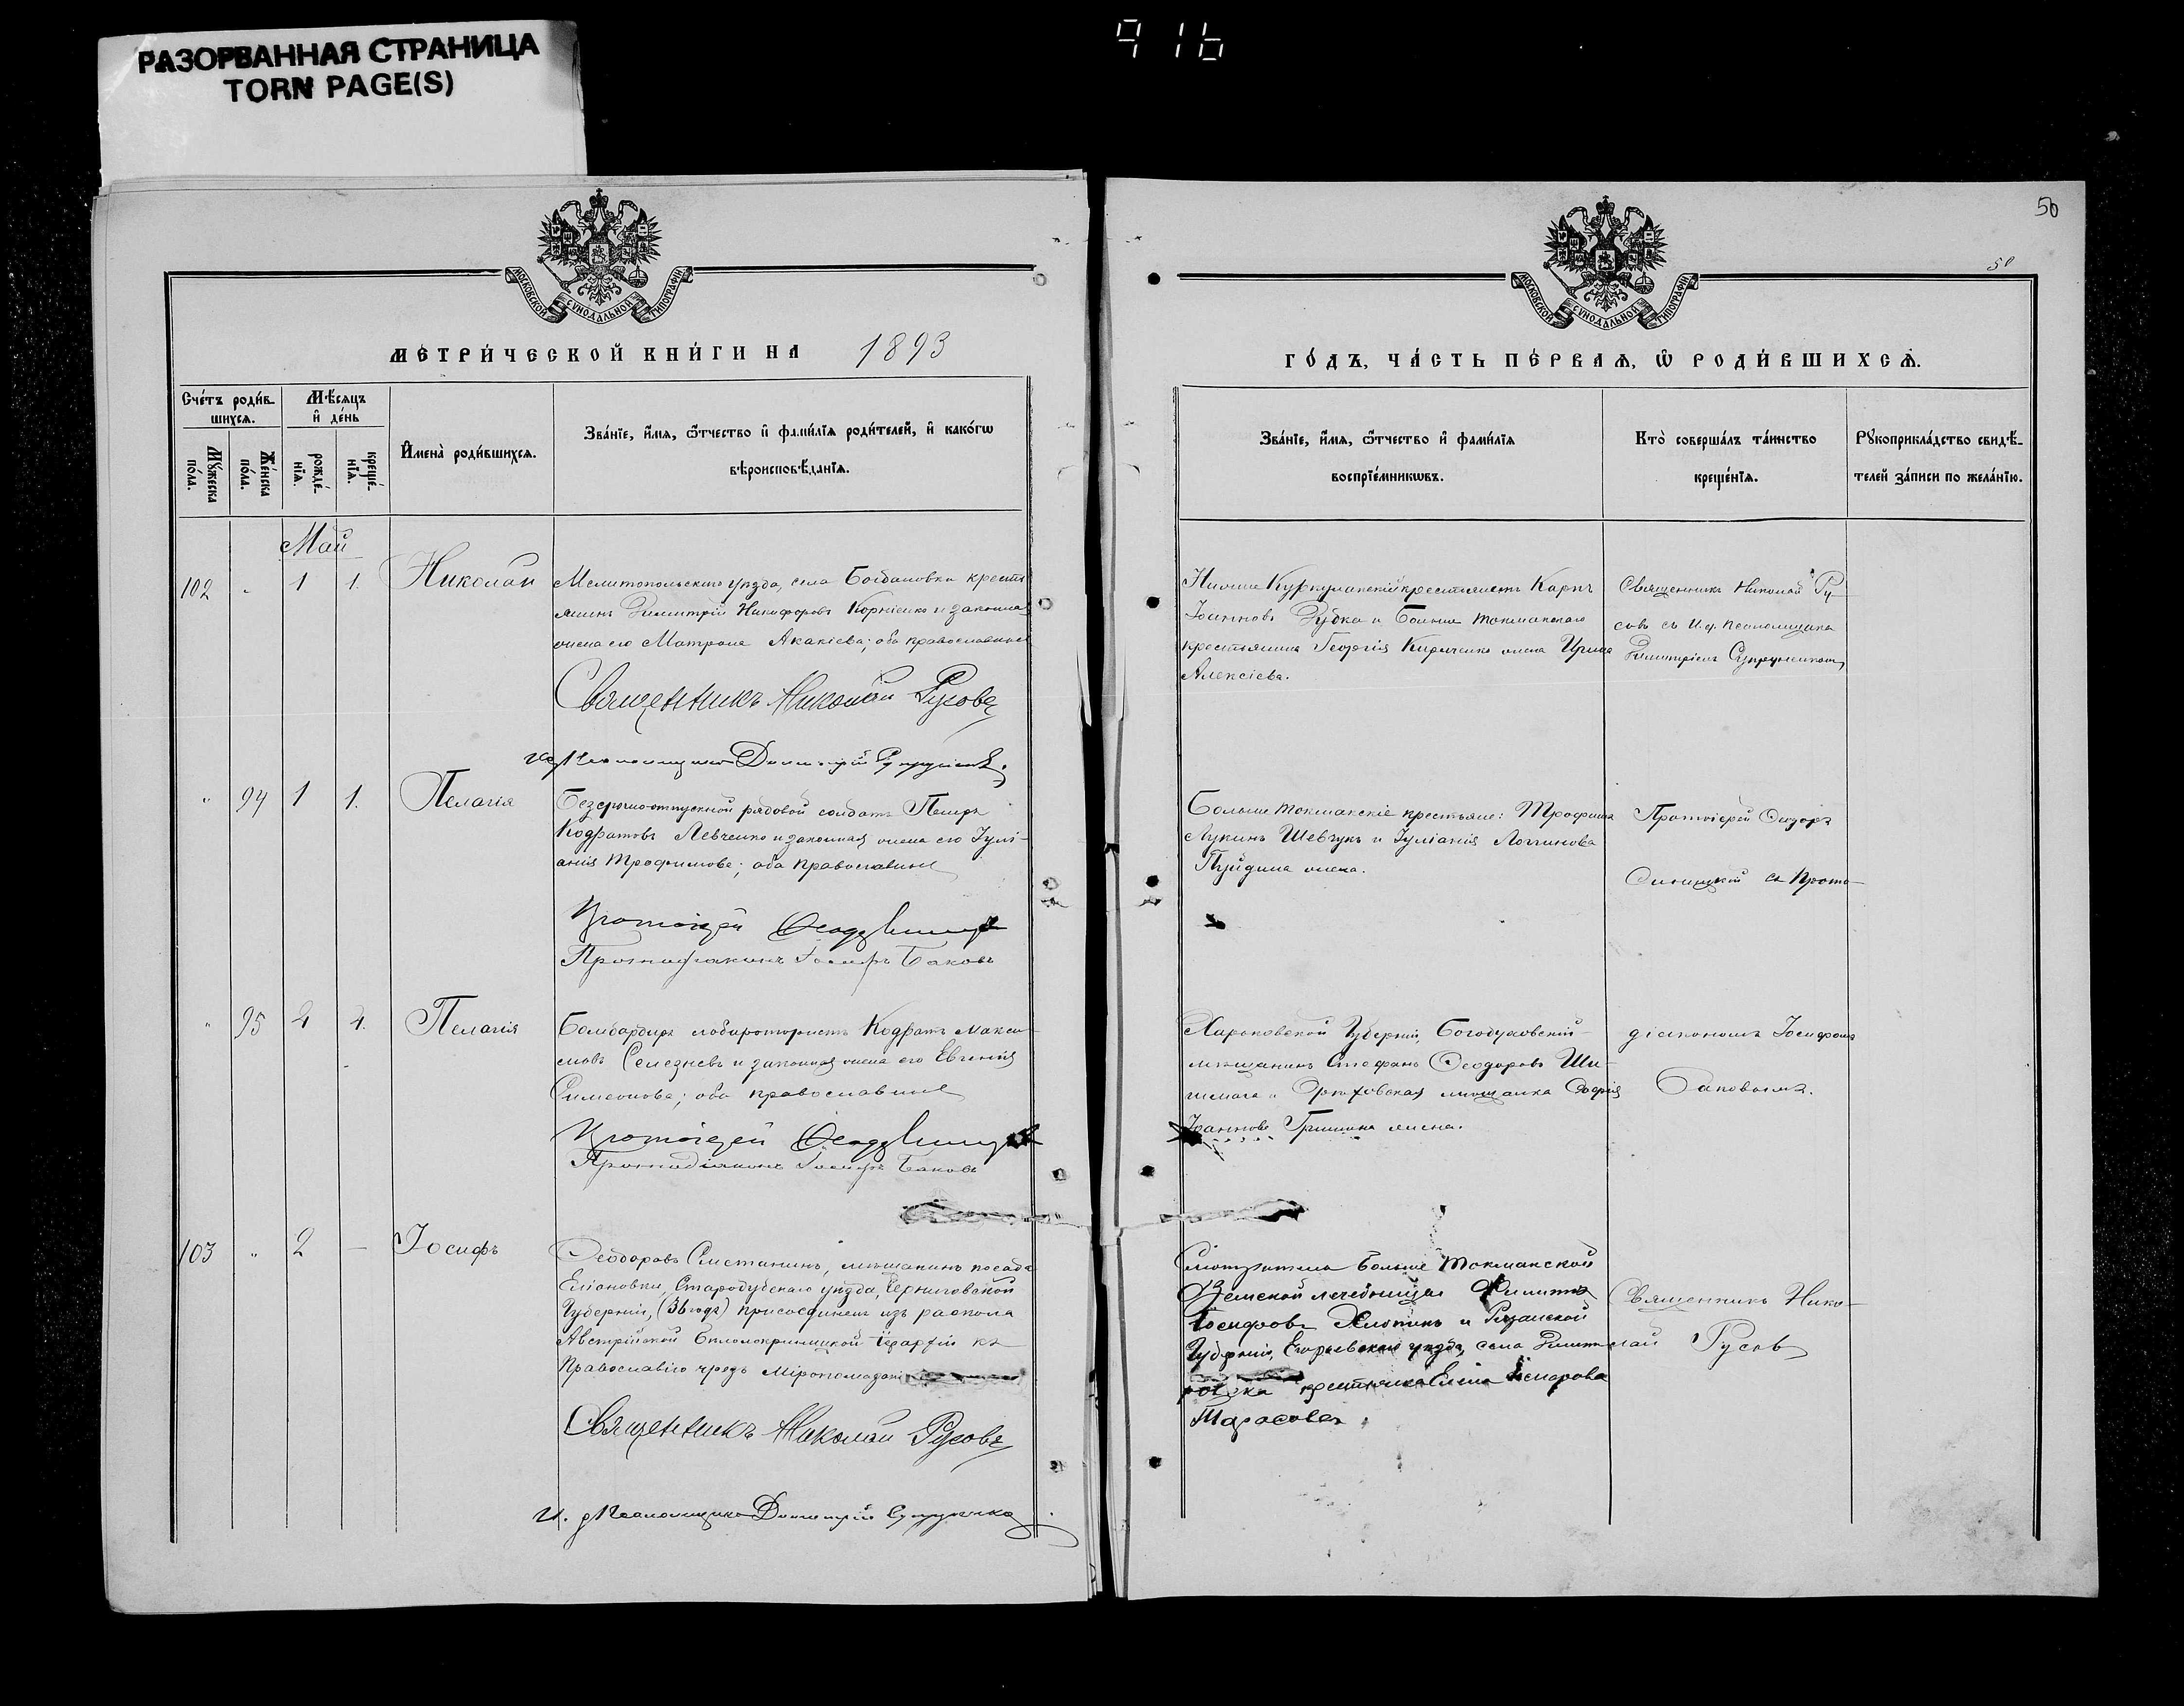 РАЗОРВАННАЯ СТРАНИЦА
TORN PAGE(S)
916
50
50
МОСКОВСКОЙ СѴНОДАЛЬНОЙ ТИПОГРАФІИ
МЕТРИ́ЧЕСКОЙ КНИ́ГИ НА 1893
Сче́тъ роди́в-
шихсѧ.
Мꙋ́жеска по́ла.
Же́нска по́ла.
Мѣ́сяцъ
и҆ де́нь
рожде́-
нїѧ.
креще́-
нїѧ.
И҆мена̀ роди́вшихсѧ.
Зва́нїе, и҆́мѧ, ѻ҆́тчество и҆ фами́лїѧ роди́телей, и҆ како́гѡ
вѣроисповѣ́данїѧ.
Май
102 " 1 1. Николай
Мелитопольскаго уѣзда, села Богдановки крестья
нинъ Димитрій Никифоровъ Корніенко и законная
жена его Матрона Акакіева; оба православные
Священникъ Николай Русовъ
И. д. Псаломщика Димитрій Супруненко
" 94 1 1. Пелагія
Безсрочно-отпускной рядовой солдатъ Петръ
Кодратовъ Левченко и законная жена его Іулі-
анія Трофимова; оба православные
Протоіерей
Протодіаконъ Іосифъ Баковъ
" 95 2 2. Пелагія
Бомбардиръ лаборатористъ Кодратъ Макси
мовъ Селезневъ и законная жена его Евгенія
Симеонова; оба православные
Протоіерей
Протодіаконъ Іосифъ Баковъ
103 " 2 — Іосифъ
Ѳеодоровъ Сметанинъ, мѣщанинъ посада
Еліоновки, Стародубскаго уѣзда, Черниговской
Губерніи, (36 годъ) присоединенъ изъ раскола
Австрійской Бѣлокриницкой Іерархіи къ
Православію чрезъ Мѵропомазаніе
Священникъ Николай Русовъ
И. д. Псаломщика Димитрій Супруненко
МОСКОВСКОЙ СѴНОДАЛЬНОЙ ТИПОГРАФІИ
ГО́ДЪ, ЧА́СТЬ ПЕ́РВАѦ, Ѽ РОДИ́ВШИХСѦ.
Зва́нїе, и҆́мѧ, ѻ҆́тчество и҆ фами́лїѧ
воспрїе́мникѡвъ.
Кто̀ соверша́лъ та́инство
креще́нїѧ.
Рꙋкоприкла́дство свидѣ́-
телей за́писи по жела́нїю.
Нижне Куркулакскій крестьянинъ Карпъ
Іоанновъ Зубко и Больше Токмакскаго
крестьянина Георгія Кириченко жена Ирина
Алексіева.
Священникъ Николай Ру
совъ съ И. д. Псаломщика
Димитріемъ Супруненкомъ
Больше Токмакскіе крестьяне: Трофимъ
Лукинъ Шевчукъ и Іуліанія Логгинова
жена.
Протоіерей Ѳеодоръ
съ Прото-
Харьковской Губерніи, Богодуховскій
мѣщанинъ Стефанъ Ѳеодоровъ Ши-
и Орѣховская мѣщанка Софія
Іоаннова Гришина жена.
діакономъ Іосифомъ
Баковымъ.
Смотритель Больше Токмакской
Земской лечебницы Филиппъ
Іосифовъ Хлопинъ и Рязанской
Губерніи, Егорьевскаго уѣзда, села Димит
крестьянка
Тарасова.
Священникъ Нико-
лай Русовъ